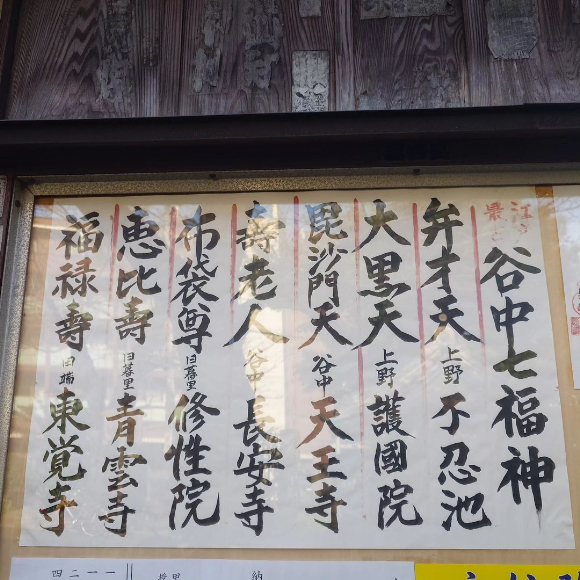 江戸最古
谷中七福神
弁才天 上野 不忍池
大黒天 上野 護國院
毘沙門天 谷中 天王寺
壽老人 谷中 長安寺
布袋尊 旧暮里 修性院
恵比寿 旧暮里 青雲寺
福禄寿 田端 東覚寺
納
四二一一